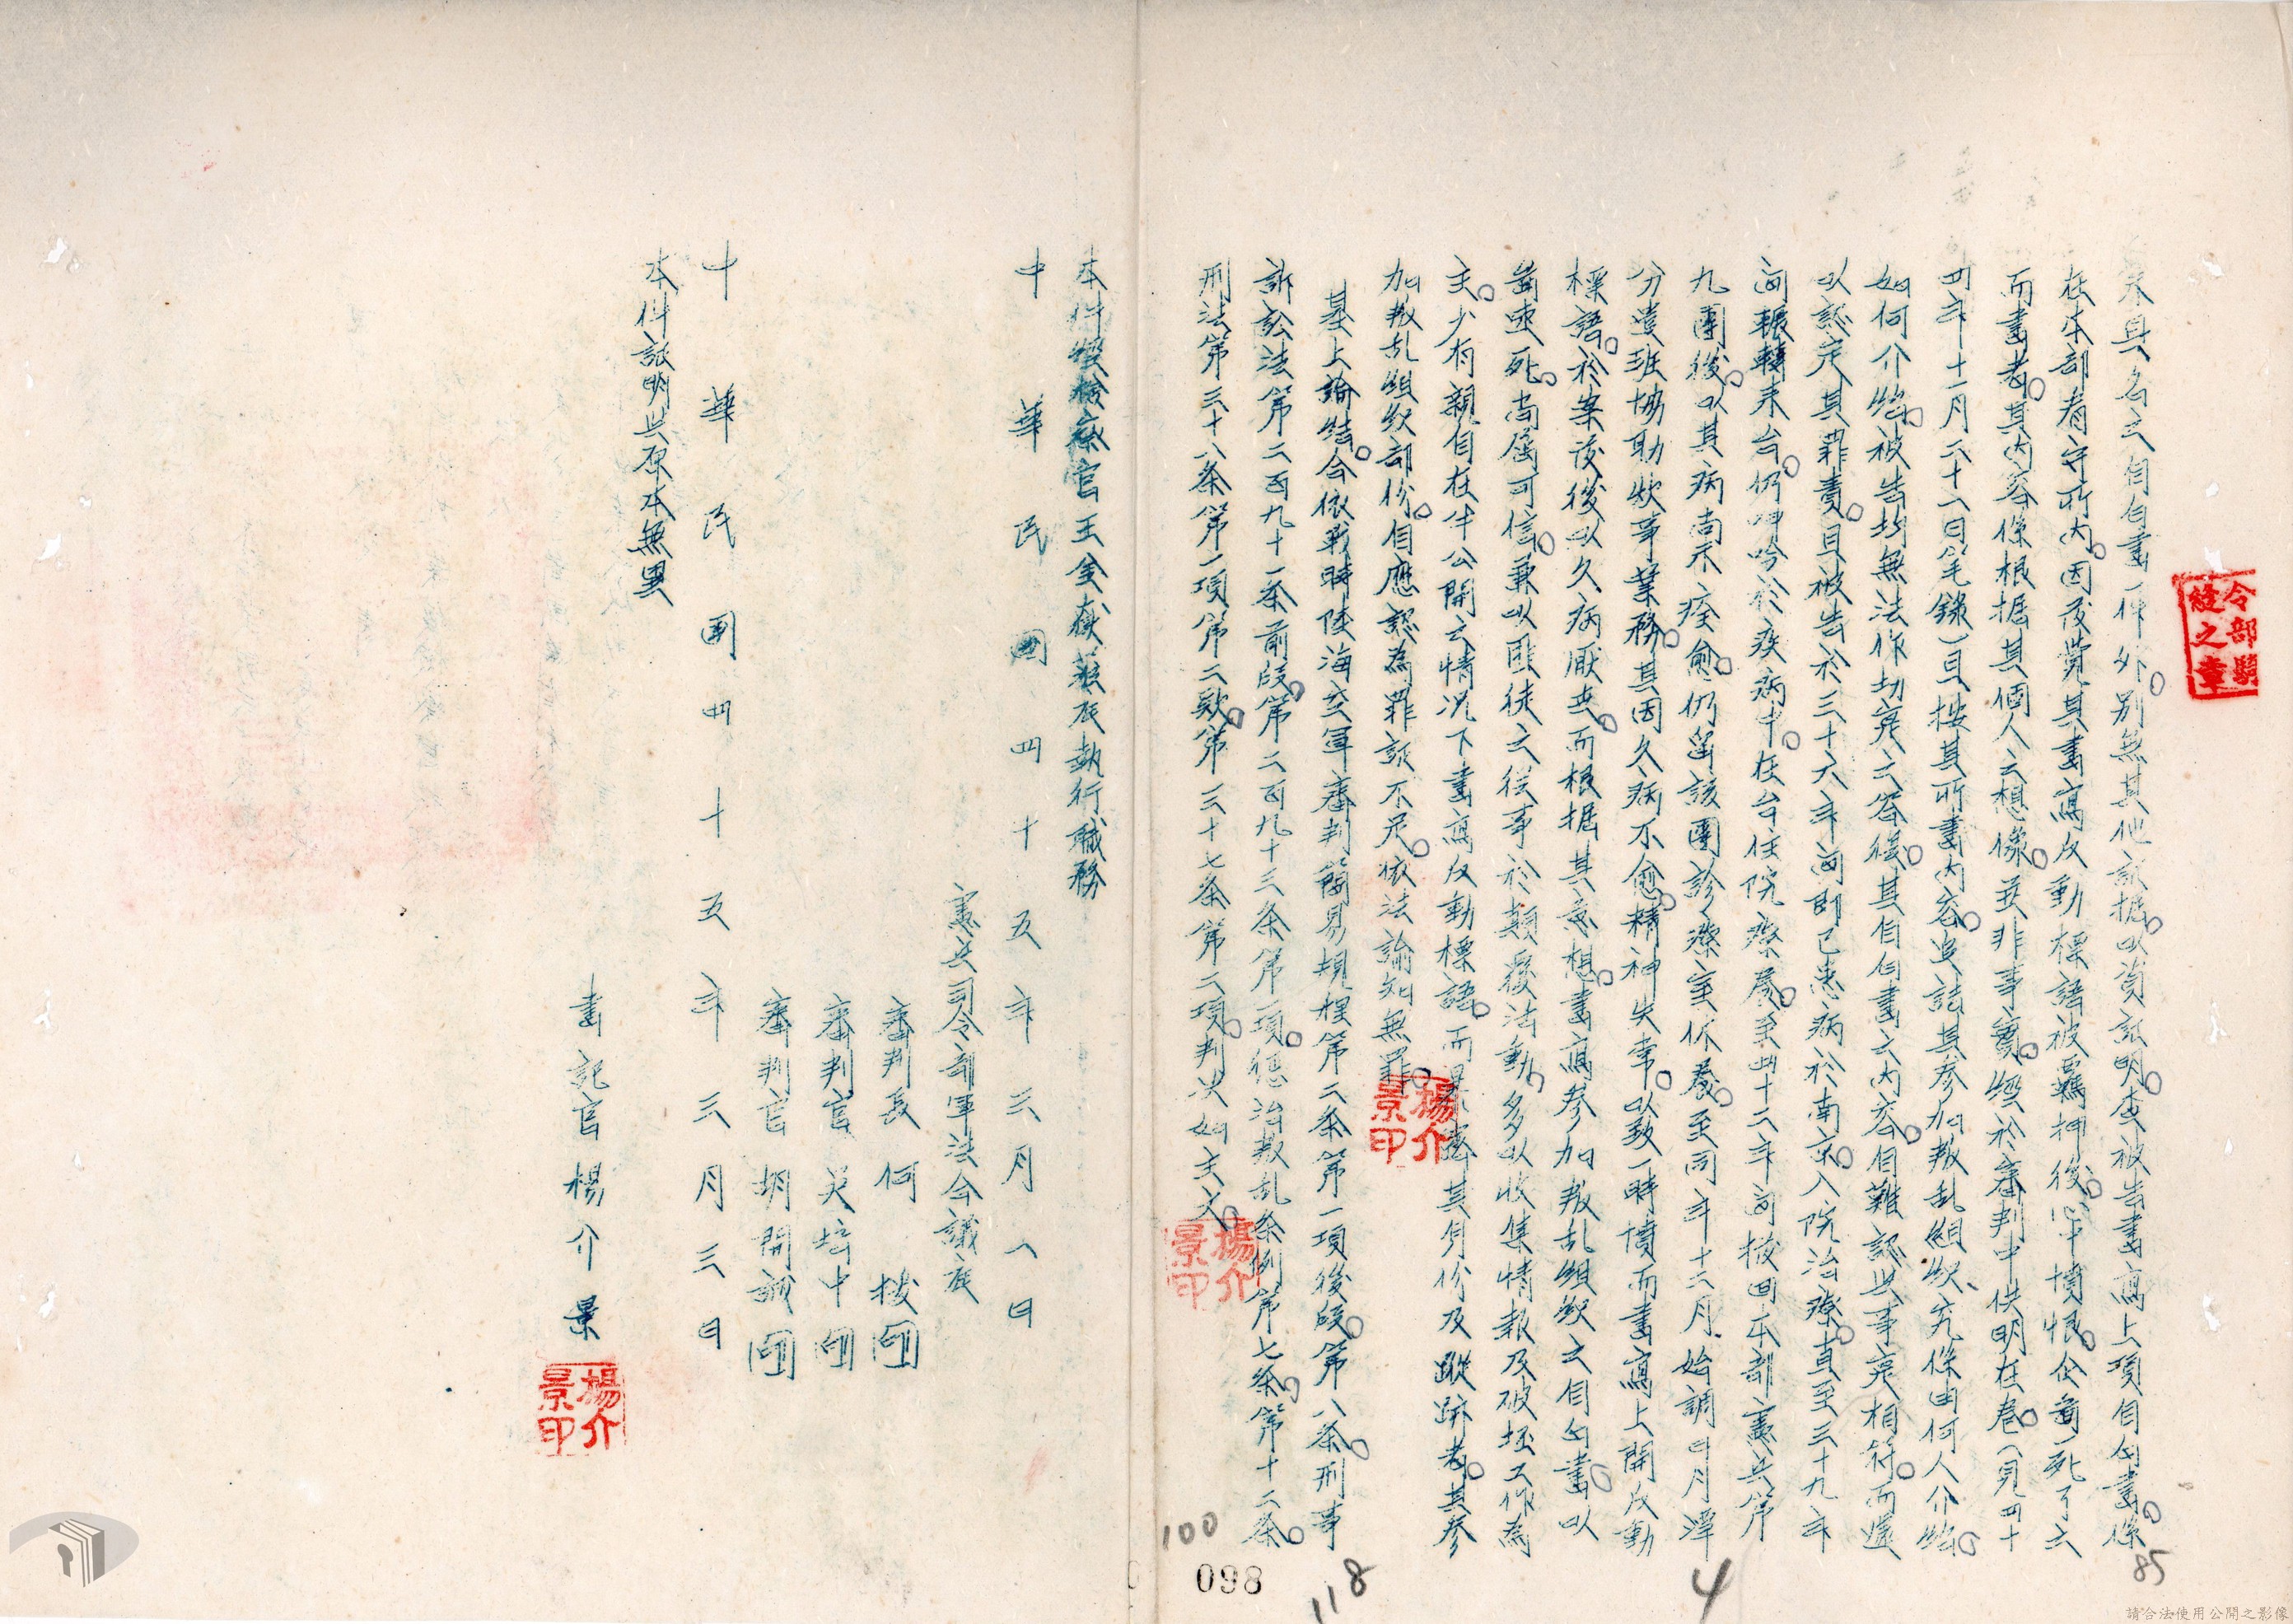 未具名之自白書一件外。別無其他証据。以資証明。查被告書寫上項自白書。係
在本部看守所內。因反覺其書寫反動標語被羈押後。心中憤恨。企圖死了之
而書者。其內容係根据其個人之想像。並非事實。經於審判中供明在卷。(見四十
四年十一月二十八日筆錄)且按其所書內容。追詰其參加叛乱組织、究係由何人介紹。
如何介紹。被告均無法作切实之答復。其自白書之內容。自難認與事实相符。而遽
以認定其罪責。且被告於三十六年間即已患病於南京。入院治療。直至三十九年
間輾轉來台。仍呻吟於疾病中。在台住院療養。至四十二年間撥回本部憲兵第
九團後。以其病尚未痊愈。仍留該團診療室休養。至同年十二月、始調日月潭
分遣班協助炊事業務。其因久病不愈。精神失常。以致一時憤而書寫上開反動
標語。於案發後以久病厭世。而根据其意想。書寫參加叛乱組织之自白書。以
啚速死。尚屬可信。兼以匪徒之從事於顛覆活動。多以收集情報及破坯工作為
主。少有親自在半公開之情況下書寫反動標語。而暴露其身份及蹤跡者。其參
加叛乱組织部份。自應認為罪証不足。依法諭知無罪。
基上論結。合依戰時陸海空軍審判簡易規程第二条第一項後段。第八条。刑事
訴訟法第二百九十一条前段。第二百九十三条第一項。懲治叛乱条例第七条。第十二条。
刑法第三十八条第一項第二款。第三十七条第二項。判決如主文。
本件經檢察官王金嶽蒞庭執行職務
中華民國四十五年三月八日
憲兵司令部軍法合議庭
審判長何 拔 印
審判官吴培中 印
審判官胡開誠 印
中華民國四十五年三月三日
本件証明與原本無異
書記官楊介景
楊介景印
楊介景印
楊介景印
令部騎縫之章
85
4
118
100
098
請合法使用公開之影像